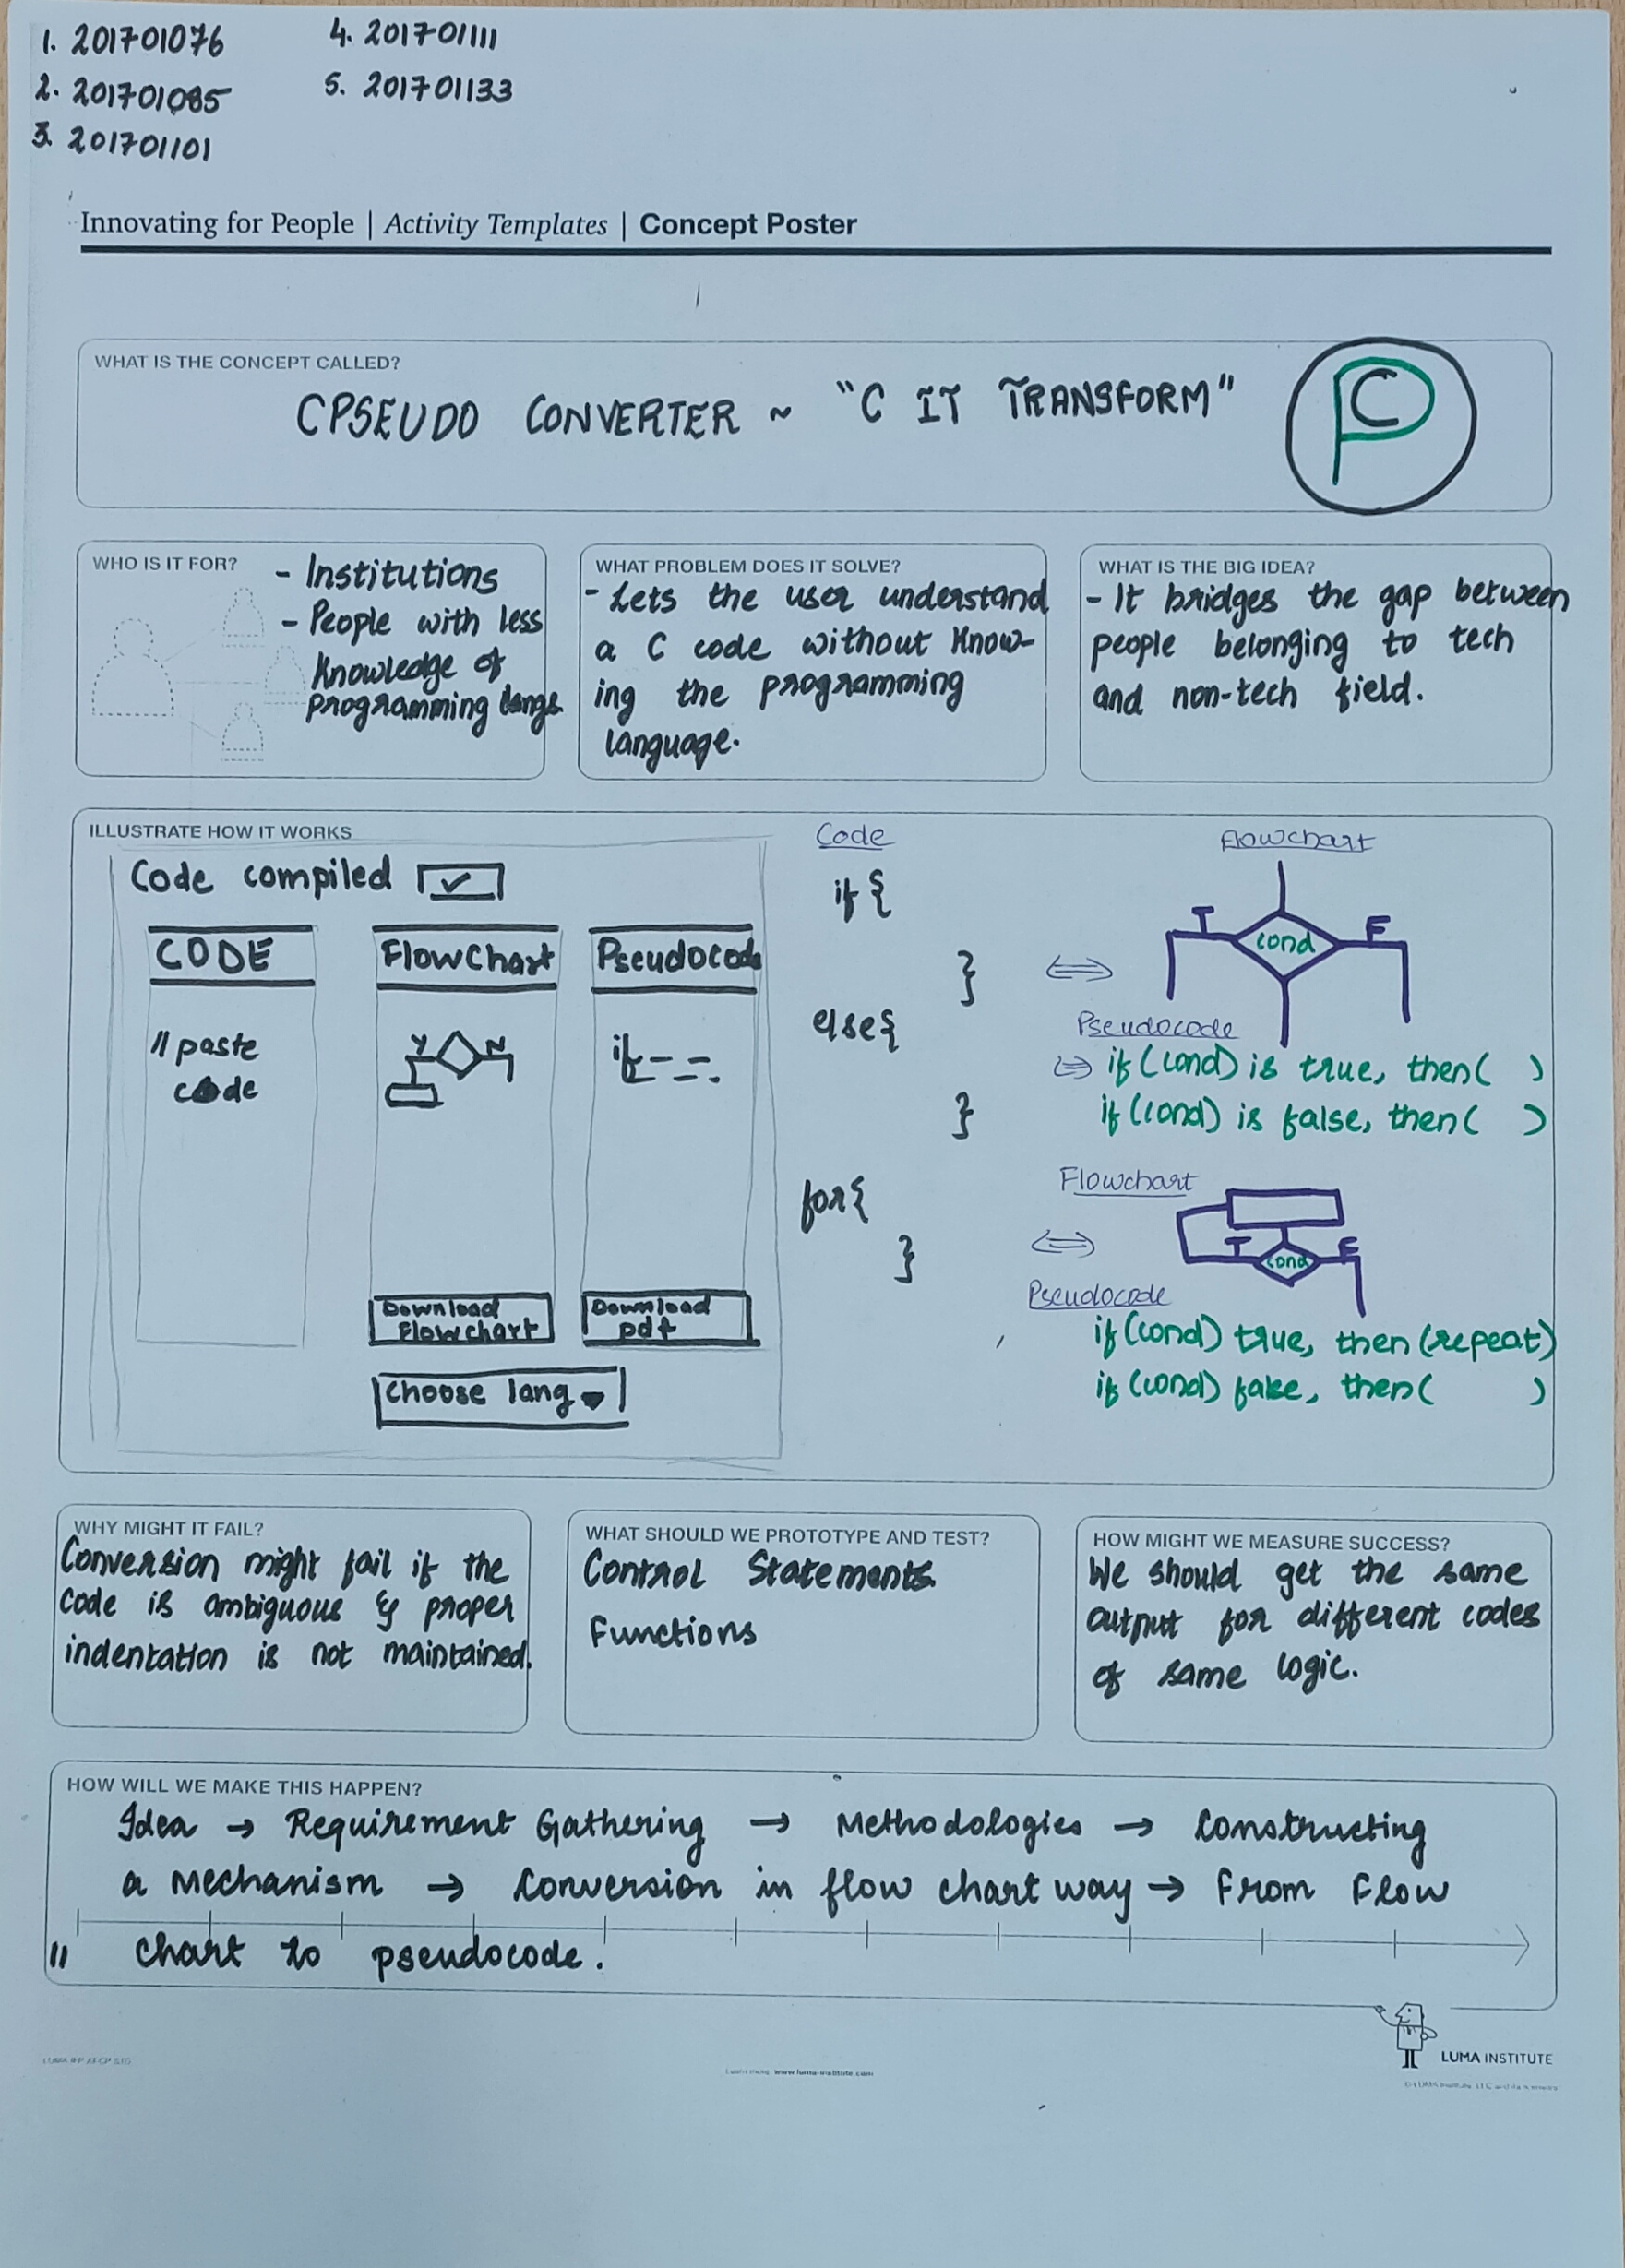 1. 201701076
2. 201701085
3. 201701101
4. 201701111
5. 201701133
Innovating for People | Activity Templates | Concept Poster
WHAT IS THE CONCEPT CALLED?
CPSEUDO CONVERTER ~ "C IT TRANSFORM"
PC
WHO IS IT FOR?
- Institutions
- People with less
Knowledge of
programming langs
WHAT PROBLEM DOES IT SOLVE?
- Lets the user understand
a C code without know-
ing the programming
language.
WHAT IS THE BIG IDEA?
- It bridges the gap between
people belonging to tech
and non-tech field.
ILLUSTRATE HOW IT WORKS
Code compiled ✓
CODE
// paste
code
FlowChart
Y N
Download
Flowchart
Pseudocode
if - - -.
Download
pdf
Choose lang
Code
if {
}
else{
}
for{
}
Flowchart
T cond F
Pseudocode
⇔ if (cond) is true, then ( )
if (cond) is false, then ( )
Flowchart
T cond F
Pseudocode
if (cond) true, then (repeat)
if (cond) false, then ( )
WHY MIGHT IT FAIL?
Conversion might fail if the
code is ambiguous & proper
indentation is not maintained.
WHAT SHOULD WE PROTOTYPE AND TEST?
Control Statements.
Functions
HOW MIGHT WE MEASURE SUCCESS?
We should get the same
output for different codes
of same logic.
HOW WILL WE MAKE THIS HAPPEN?
Idea → Requirement Gathering → Methodologies → Constructing
a Mechanism → Conversion in flow chart way → From Flow
// chart to pseudocode.
LUMA INSTITUTE
www.luma-institute.com